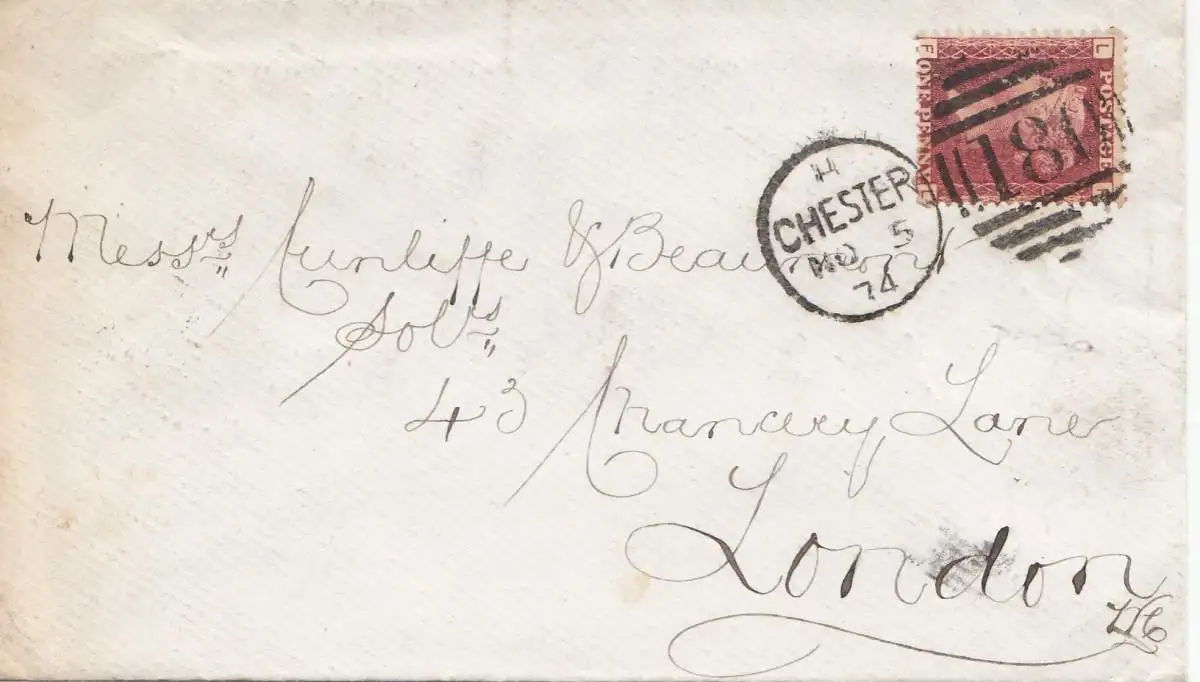 L F
POSTAGE
ONE PENNY
181
H
CHESTER
NO 5
74
Messrs Cunliffe & Beaumont
Solrs
43 Chancery Lane
London
WC